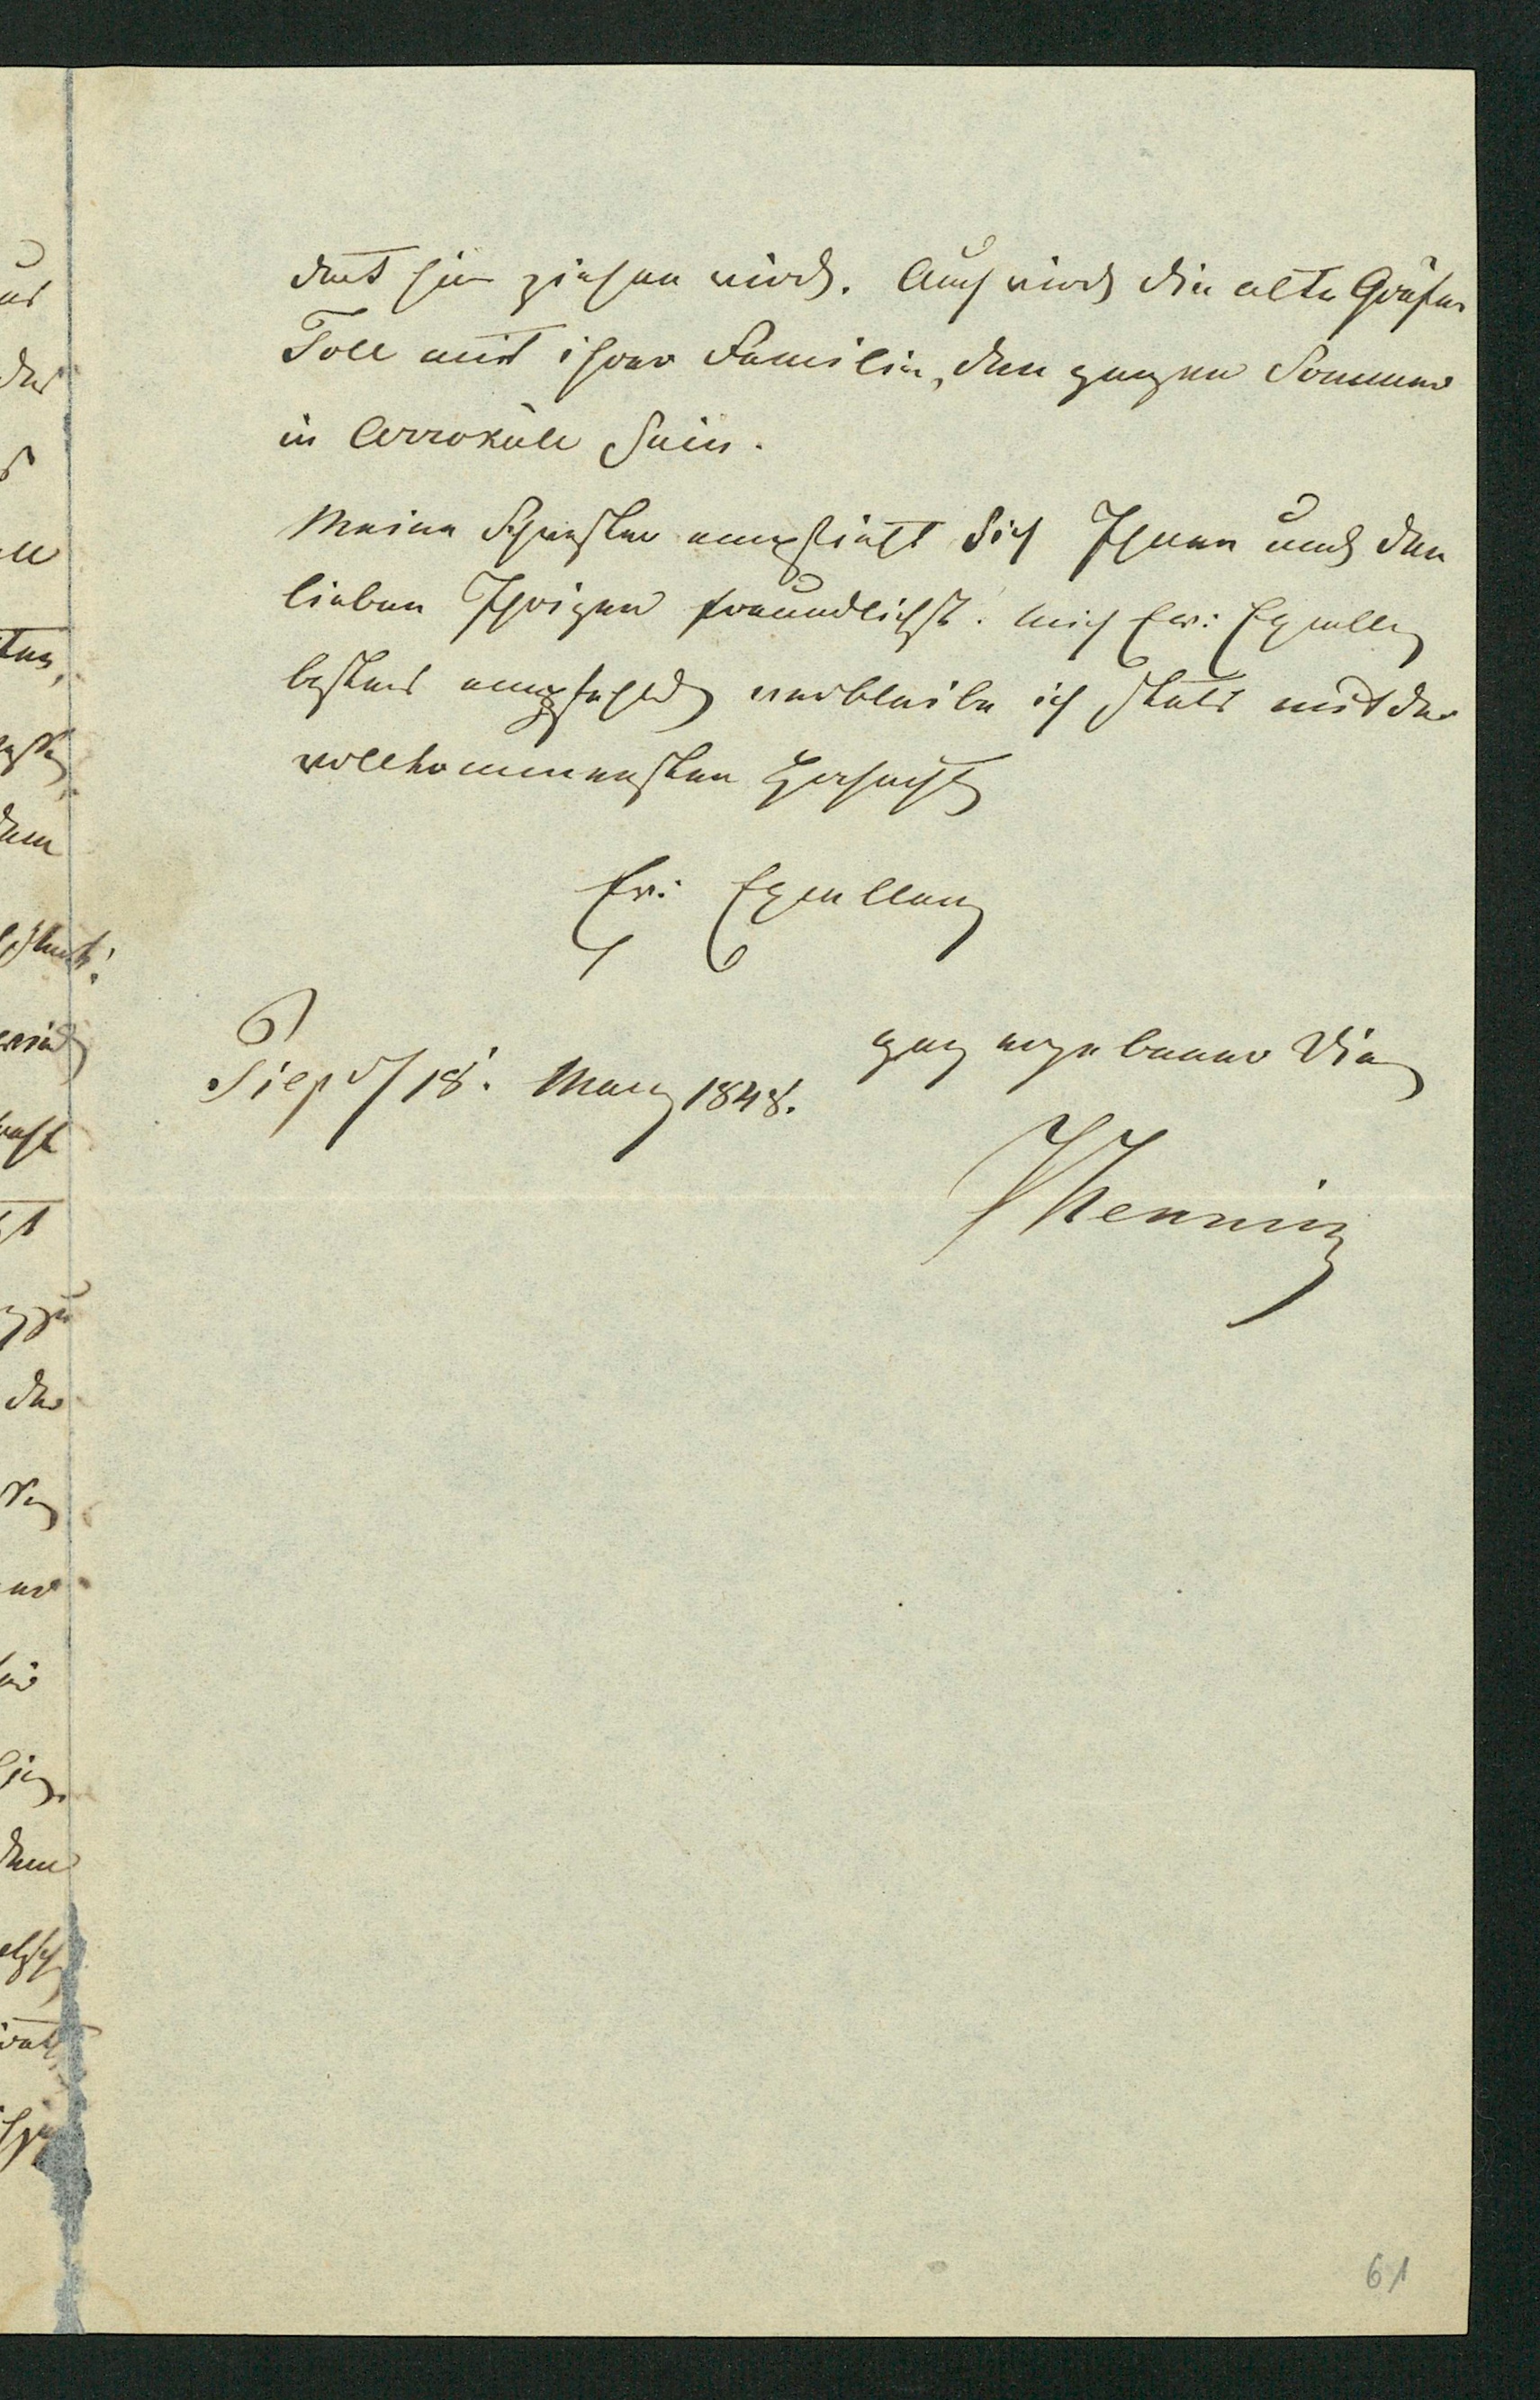 dort hin ziehen wird. Auch wird die alte Gräfin
Toll mit ihrer Familie, den ganzen Sommer
in Arroküll sein.
Meine Schwester empfiehlt sich Ihnen und den
lieben Ihrigen freundlichst. Mich Ew: Excellenz
bestens empfehlend verbleibe ich stets mit der
vollkommensten Hochacht
Ew: Excellenz
ganz ergebener Die
d/18. März 1848.
Henning
61